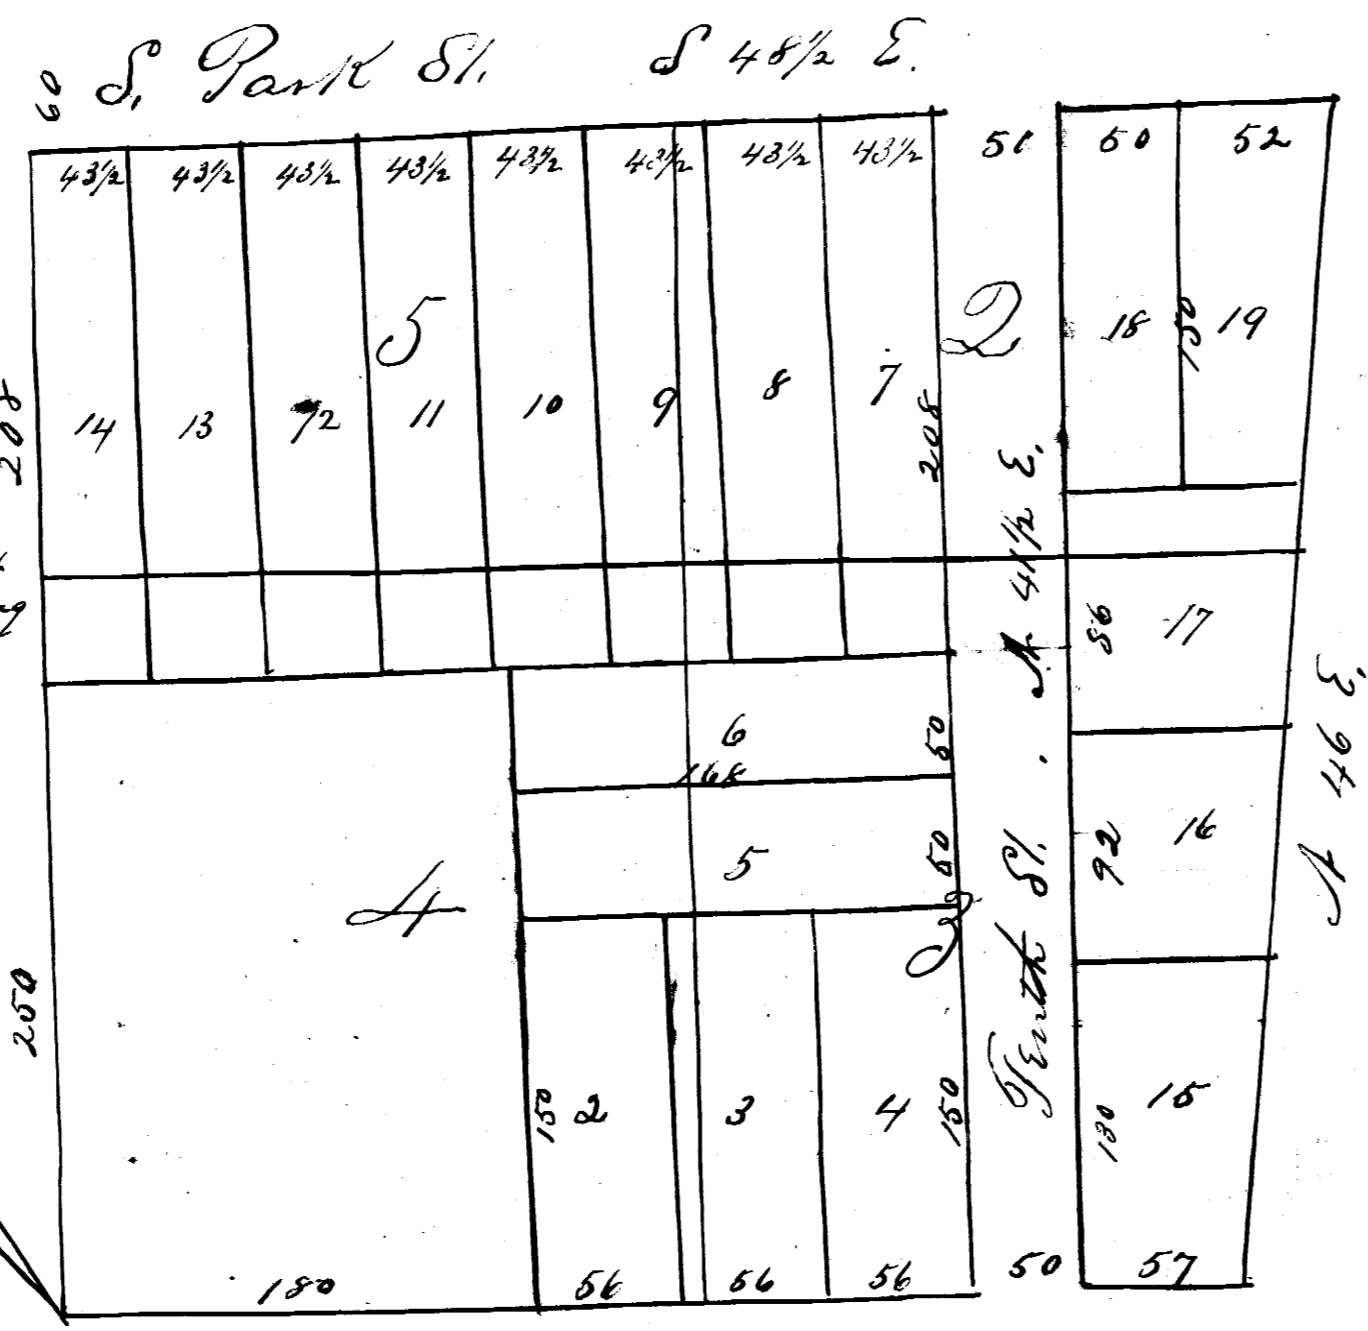 60 S. Park St. S 48½ E.
43½ 43½ 43½ 43½ 43½ 43½ 43½ 43½ 51 50 52
5 2
18 150 19
14 13 12 11 10 9 8 7
208 208
N 41½ E.
86 17
6 50
168
5 50
92 16
N 46 E.
4 3
Tenth St.
250
150 2 3 4 150
130 15
180 56 56 56 50 57